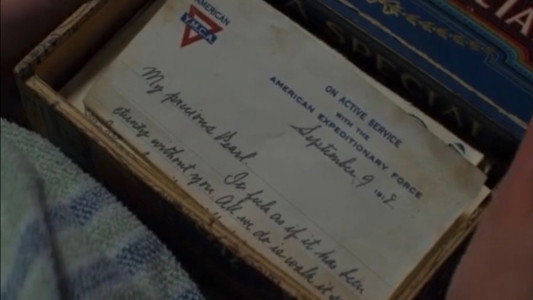 AMERICAN
Y.M.C.A.
ON ACTIVE SERVICE
WITH THE
AMERICAN EXPEDITIONARY FORCE
September 9 1918
My precious Pearl
It feels as if it has been
eternity without you. All we do is walk
A SPECIAL